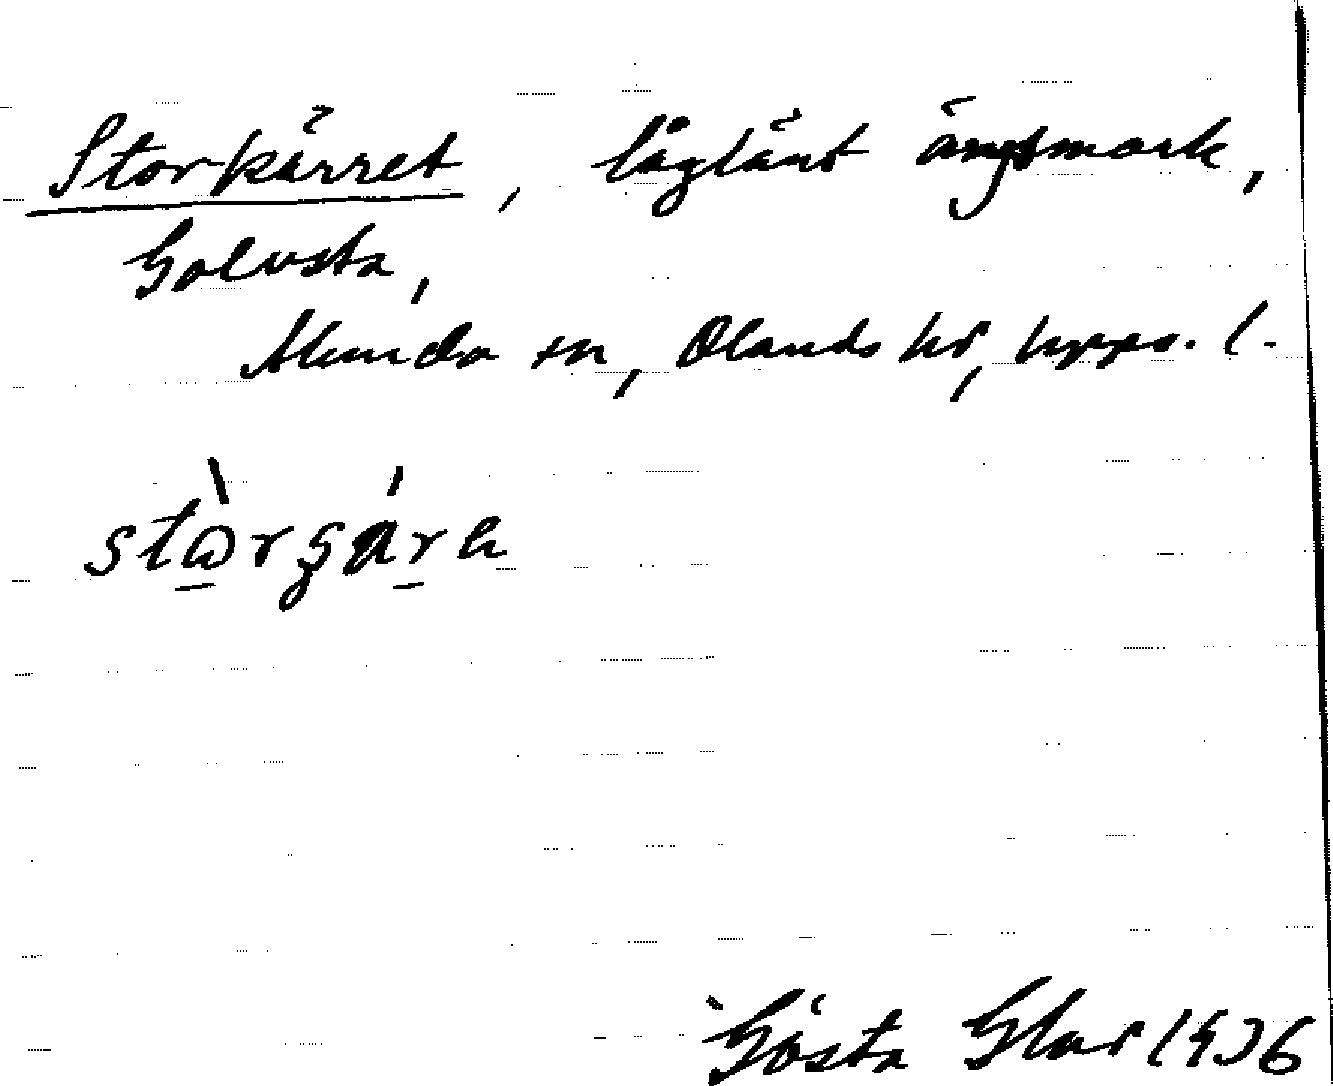 Storkärret, låglänt ängsmark,
Golvsta,
Alunda sn, Olands hd, Upps. l.
Gösta Glas 1936